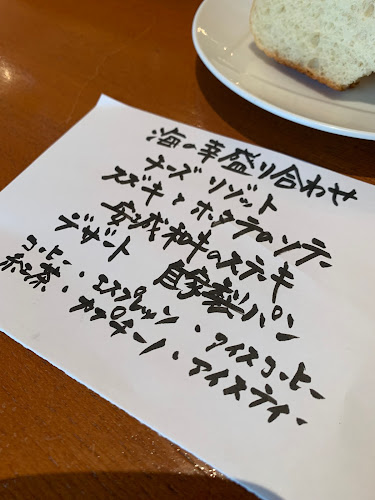 海の幸盛り合わせ
チーズリゾット
スズキとホタテのソテー
安城和牛のステキ
デザート 自家製パン
コーヒー・エスプレッソ・アイスコーヒー
紅茶・カプチーノ・アイスティー